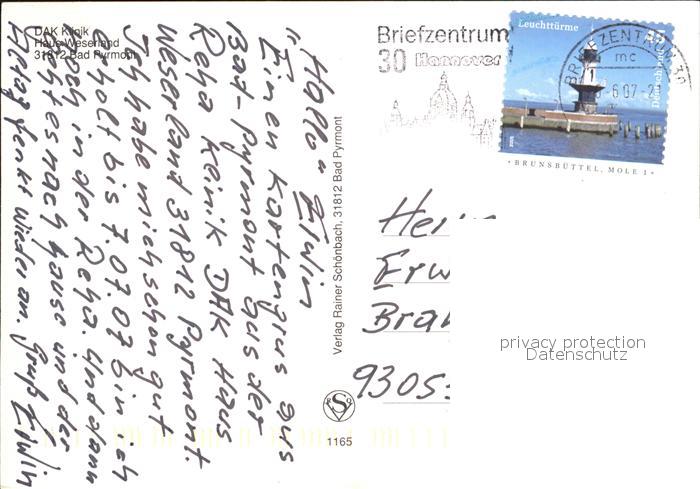 DAK Klinik
Haus Weserland
31812 Bad Pyrmont
"Hallo" Erwin
Einen Kartengrus aus
Bad-Pyrmont aus der
Reha Keinik DAK Haus
Weserland 31812 Pyrmont.
Ich habe mich schon gut
erholt bis 7.07.07 bin ich
noch in der Reha. Und dann
gehtes nach hause und der
Alltag fenkt wieder an. Gruß Erwin
Verlag Rainer Schönbach, 31812 Bad Pyrmont
1165
Briefzentrum
30 Hannover
Leuchttürme
45
Deutschland
BRIEFZENTRUM 30
mc
6.07-2
BRUNSBÜTTEL, MOLE 1
Her
Erw
Bra
9305
privacy protection
Datenschutz